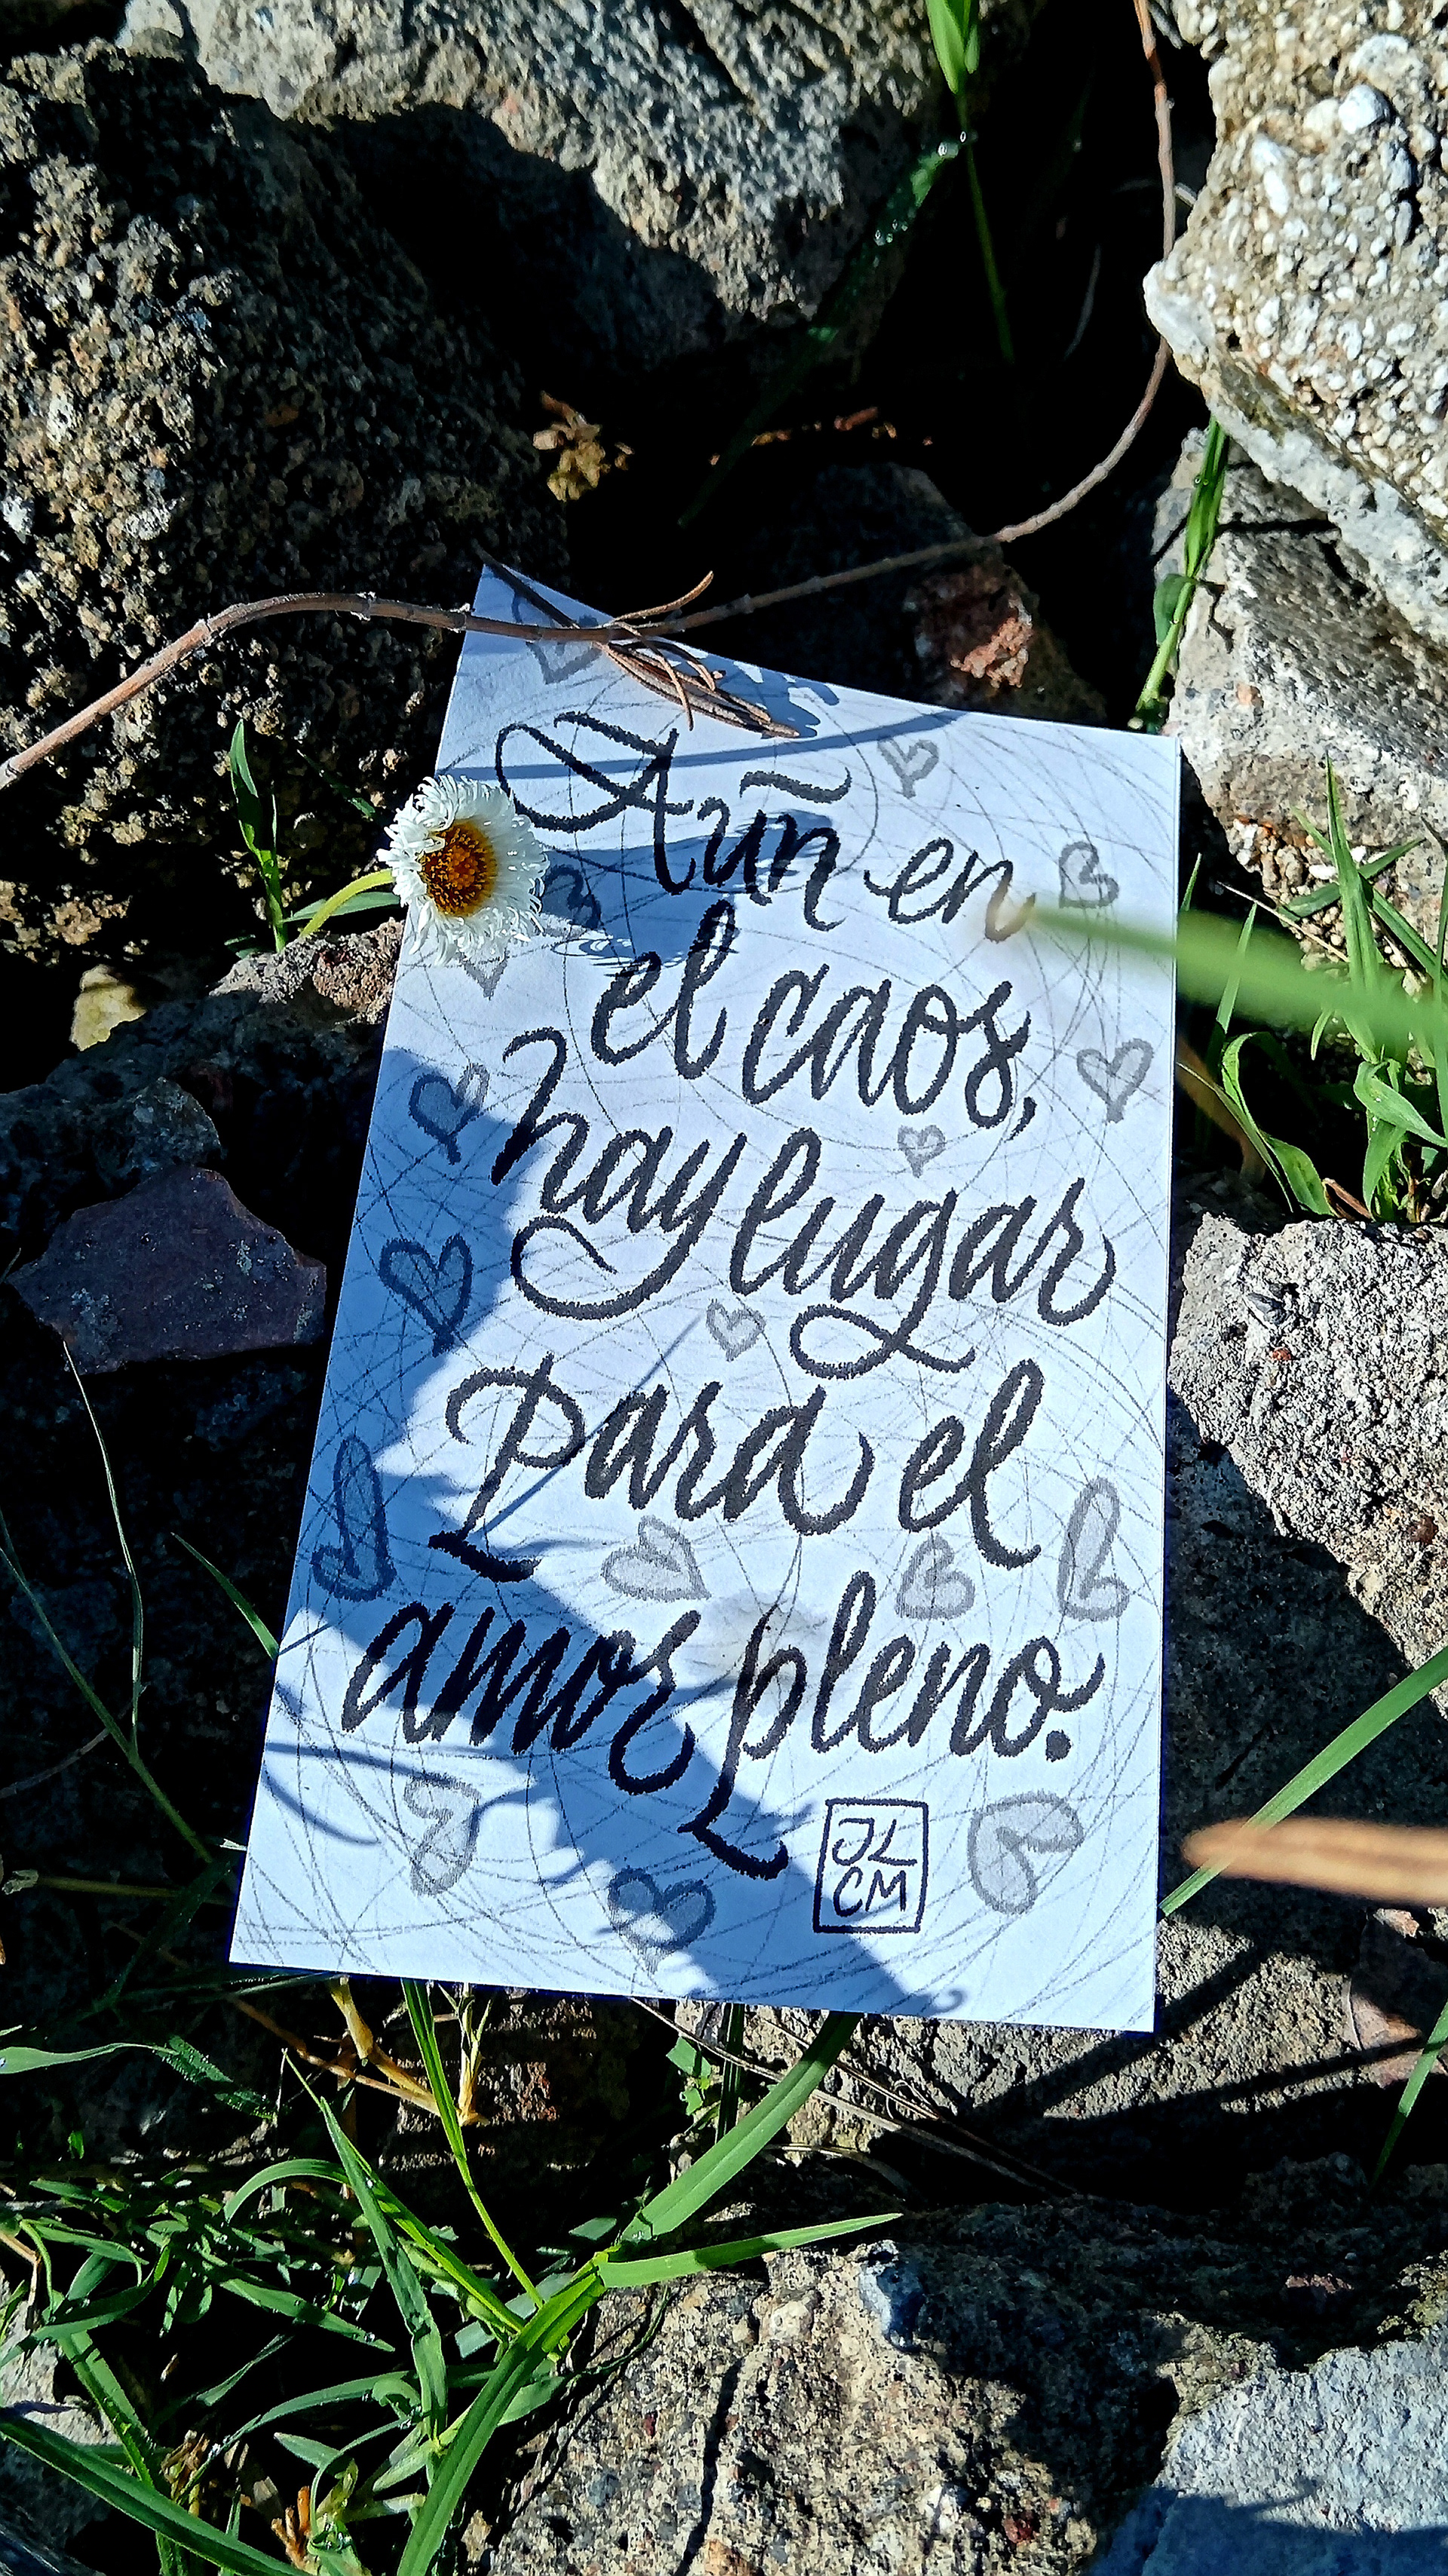 Auñ en
el caos,
hay lugar
para el
amor pleno.
JL
CM